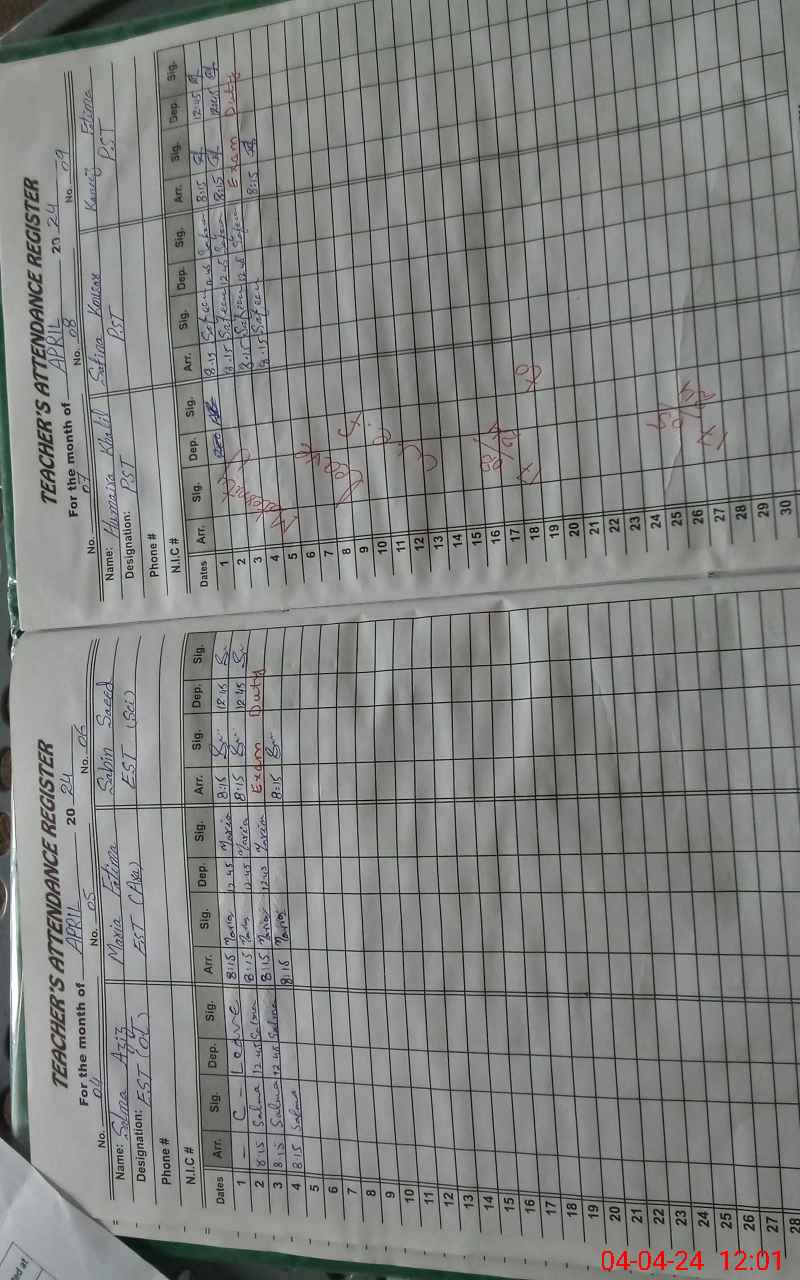 TEACHER'S ATTENDANCE REGISTER
For the month of APRIL 20 24
No. 04 No. 05 No. 06
Name: Salma Aziz Maria Fatima Sabin Saeed
Designation: EST (OT) EST EST (Sci)
Phone #
N.I.C #
Dates Arr. Sig. Dep. Sig. Arr. Sig. Dep. Sig. Arr. Sig. Dep. Sig.
1 - C - Leave 8:15 Maria 12 45 Maria 8:15 12 45
2 8:15 Salma 12 45 Salma 8:15 Maria 12 45 Maria 8:15 12 45
3 8:15 Salma 12 45 Salma 8:15 Maria 12 45 Maria Exam Duty
4 8:15 Salma 8:15 Maria 8:15
5
6
7
8
9
10
11
12
13
14
15
16
17
18
19
20
21
22
23
24
25
26
27
28
TEACHER'S ATTENDANCE REGISTER
For the month of APRIL 20 24
No. 07 No. 08 No 09
Name: Humaira Khalil Safina Kousar Kaneez Fatima
Designation: PST PST PST
Phone #
N.I.C #
Dates Arr. Sig. Dep. Sig. Arr. Sig. Dep. Sig. Arr. Sig. Dep. Sig.
1 8:15 12 45 8:15 12:45
2 8:15 12 45 8:15 12:45
3 8:15 12 45 Exam Duty
4 8:15 8:15
5
6
7
8
9
10
11
12
13
14
15
16
17
18
19
20
21
22
23
24
25
26
27
28
29
30
Maternity
Leave
w.e.f
17
to
17/05/24
04-04-24 12:01